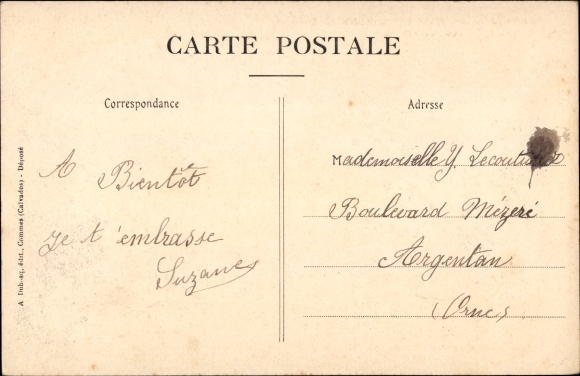 CARTE POSTALE
Correspondance
Adresse
A Bientôt
je t'embrasse
Suzanne
Mademoiselle Y.
Boulevard Mézeré
Argentan
(Orne)
édit., Commes (Calvados) - Déposé